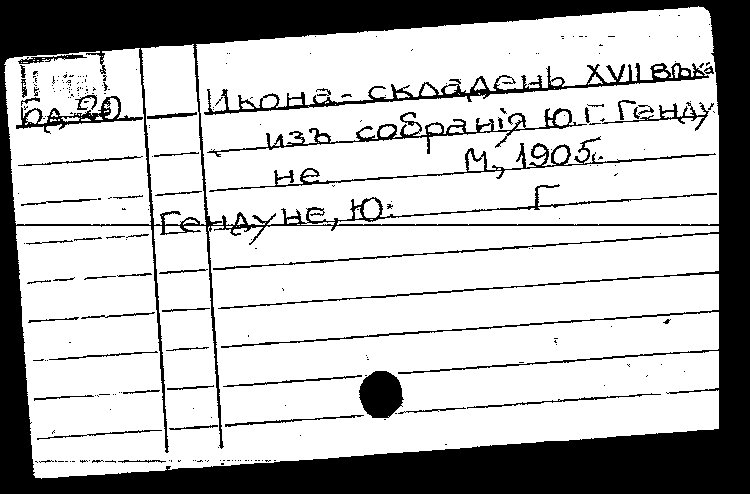 Бд 20. Икона-складень XVII вѣка
изъ собранія Ю. Г. Генду
не М., 1905.
Гендуне, Ю. Г.